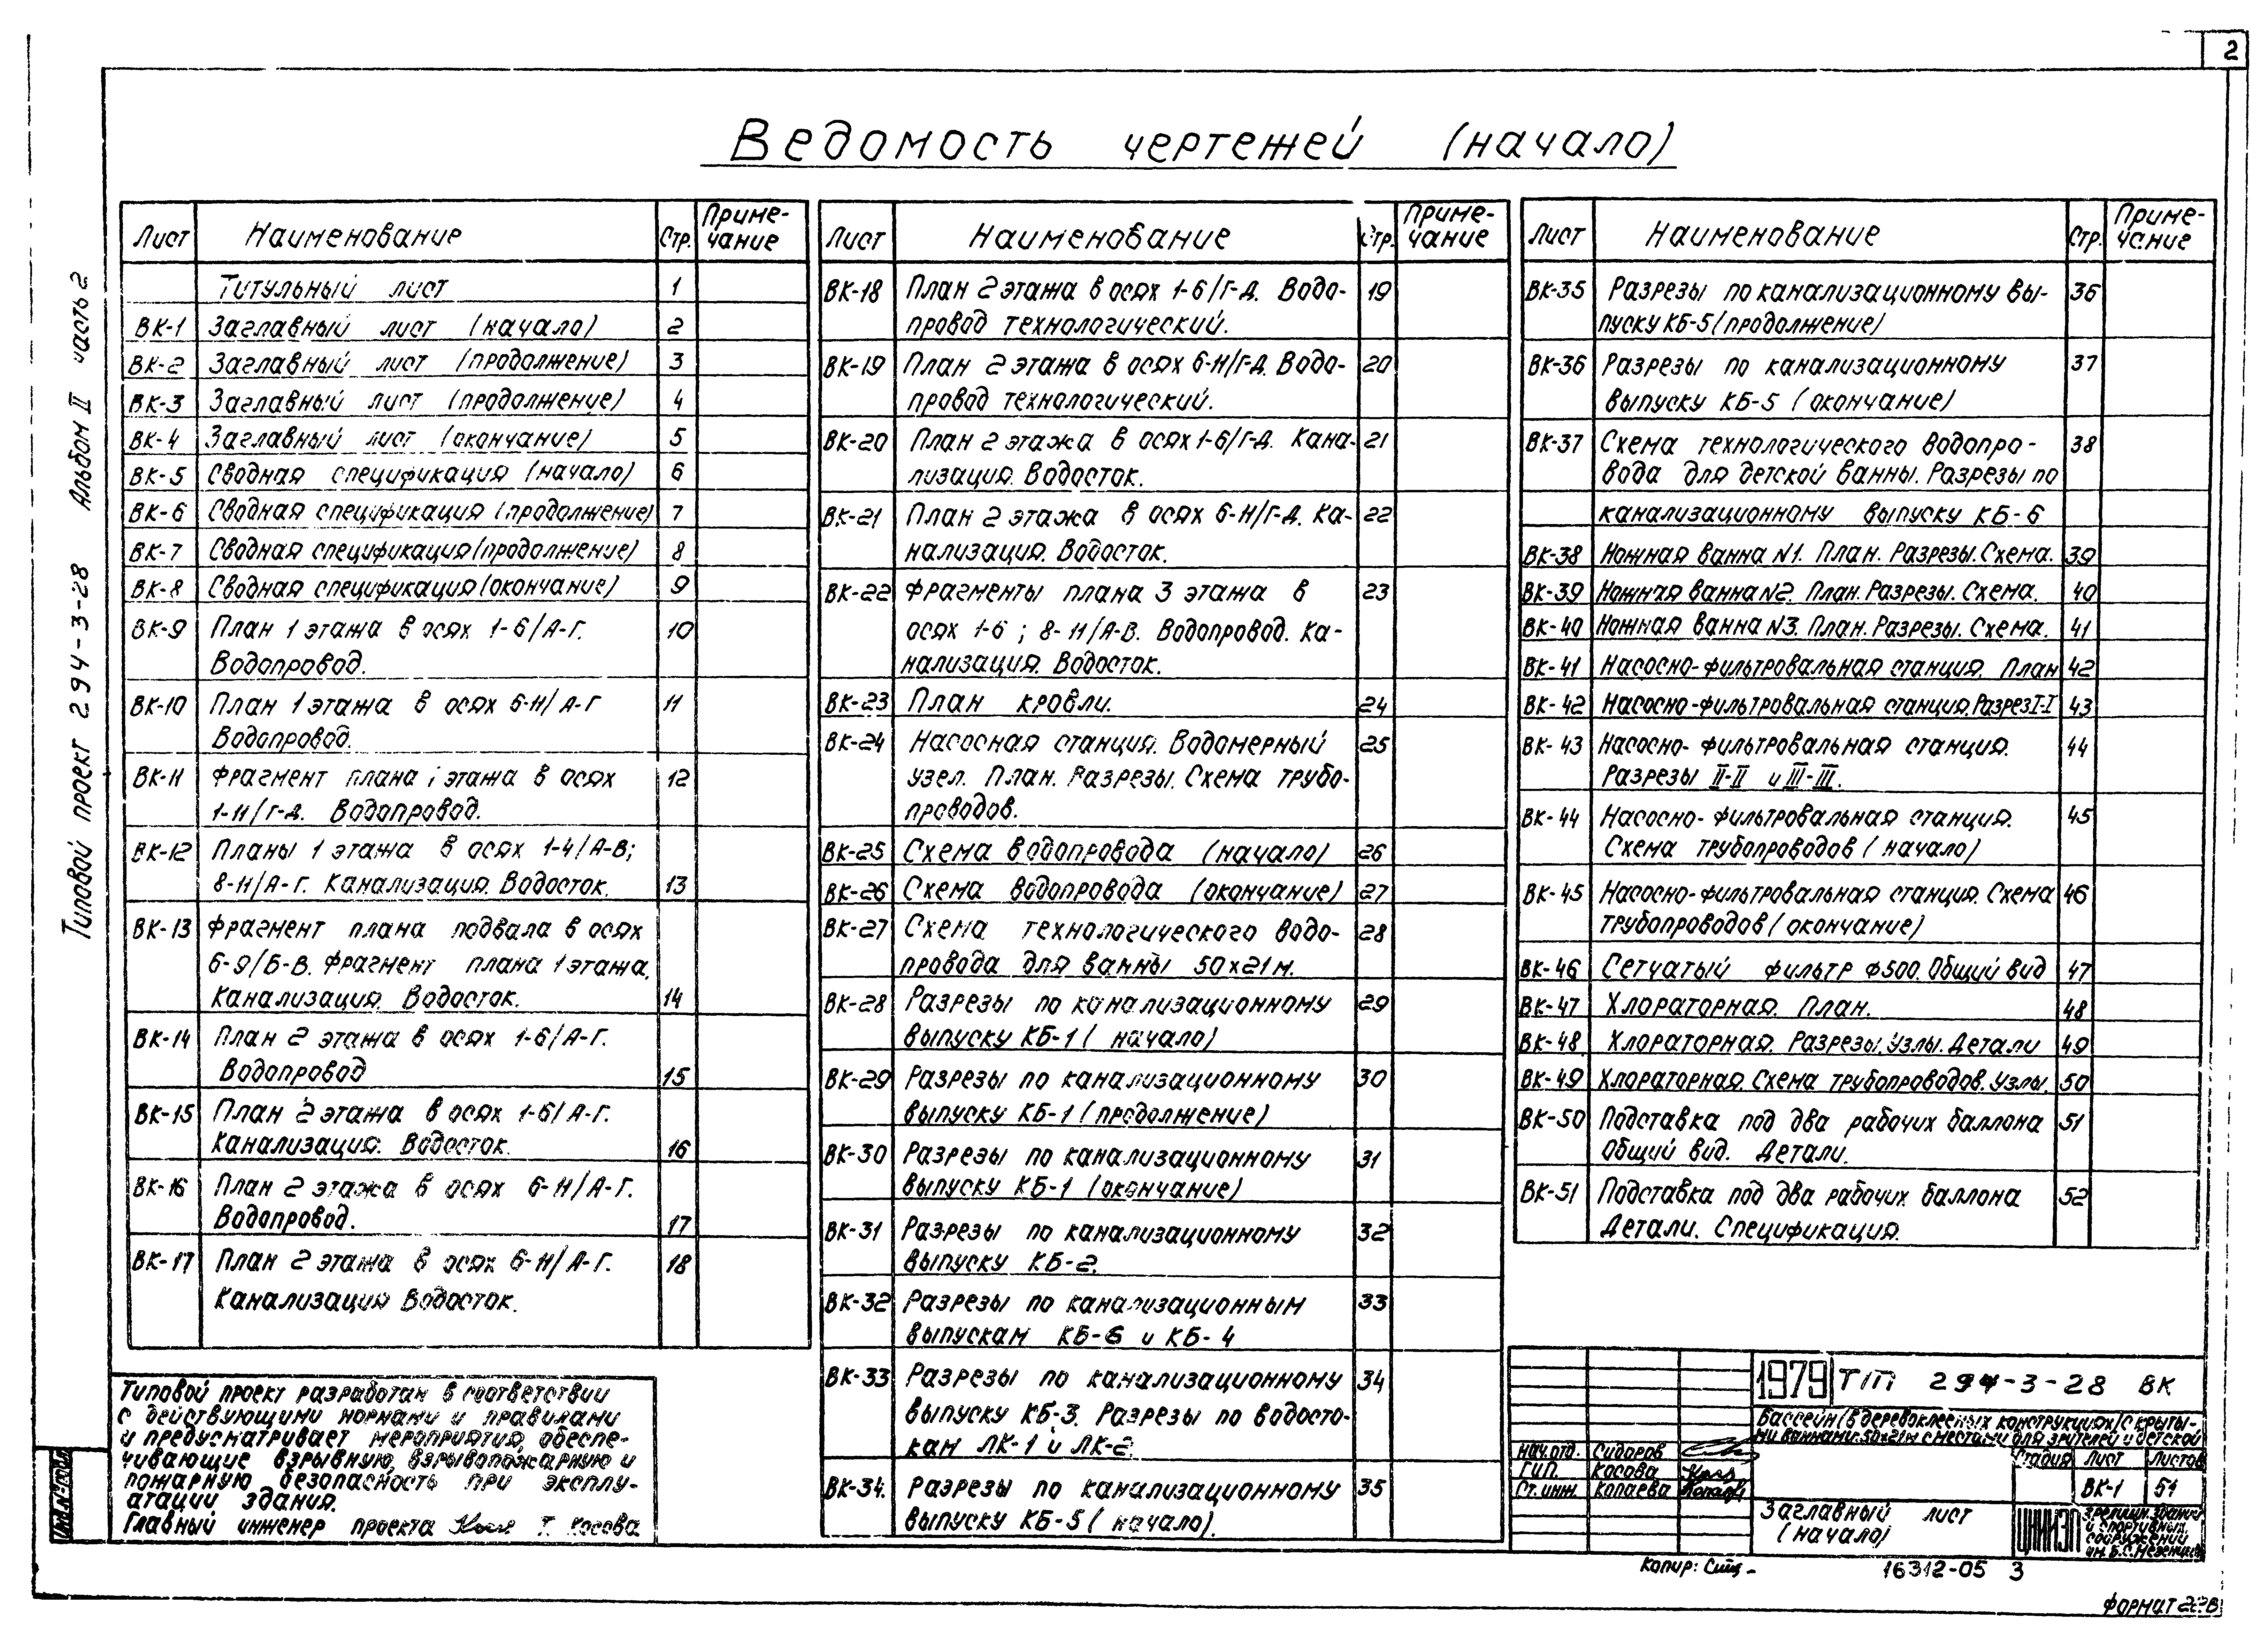 2
Ведомость чертежей (начало)
Типовой проект 294-3-28 Альбом II часть 2
Лист Наименование Стр. Приме-
чание
Титульный лист 1
ВК-1 Заглавный лист (начало) 2
ВК-2 Заглавный лист (продолжение) 3
ВК-3 Заглавный лист (продолжение) 4
ВК-4 Заглавный лист (окончание) 5
ВК-5 Сводная спецификация (начало) 6
ВК-6 Сводная спецификация (продолжение) 7
ВК-7 Сводная спецификация (продолжение) 8
ВК-8 Сводная спецификация (окончание) 9
ВК-9 План 1 этажа в осях 1-6/А-Г. 10
Водопровод.
ВК-10 План 1 этажа в осях 6-11/А-Г 11
Водопровод.
ВК-11 Фрагмент плана 1 этажа в осях 12
1-11/Г-Д. Водопровод.
ВК-12 Планы 1 этажа в осях 1-4/А-В;
8-11/А-Г. Канализация. Водосток. 13
ВК-13 Фрагмент плана подвала в осях
6-9/Б-В. Фрагмент плана 1 этажа.
Канализация. Водосток. 14
ВК-14 План 2 этажа в осях 1-6/А-Г.
Водопровод 15
ВК-15 План 2 этажа в осях 1-6/А-Г.
Канализация. Водосток. 16
ВК-16 План 2 этажа в осях 6-11/А-Г.
Водопровод. 17
ВК-17 План 2 этажа в осях 6-11/А-Г. 18
Канализация Водосток.
Лист Наименование Стр. Приме-
чание
ВК-18 План 2 этажа в осях 1-6/Г-Д. Водо- 19
провод технологический.
ВК-19 План 2 этажа в осях 6-11/Г-Д. Водо- 20
провод технологический.
ВК-20 План 2 этажа в осях 1-6/Г-Д. Кана- 21
лизация. Водосток.
ВК-21 План 2 этажа в осях 6-11/Г-Д. Ка- 22
нализация. Водосток.
ВК-22 Фрагменты плана 3 этажа в 23
осях 1-6; 8-11/А-В. Водопровод. Ка-
нализация. Водосток.
ВК-23 План кровли. 24
ВК-24 Насосная станция. Водомерный 25
узел. План. Разрезы. Схема трубо-
проводов.
ВК-25 Схема водопровода (начало) 26
ВК-26 Схема водопровода (окончание) 27
ВК-27 Схема технологического водо- 28
провода для ванны 50х21м.
ВК-28 Разрезы по канализационному 29
выпуску КБ-1 (начало)
ВК-29 Разрезы по канализационному 30
выпуску КБ-1 (продолжение)
ВК-30 Разрезы по канализационному 31
выпуску КБ-1 (окончание)
ВК-31 Разрезы по канализационному 32
выпуску КБ-2.
ВК-32 Разрезы по канализационным 33
выпускам КБ-6 и КБ-4
ВК-33 Разрезы по канализационному 34
выпуску КБ-3. Разрезы по водосто-
кам ЛК-1 и ЛК-2
ВК-34. Разрезы по канализационному 35
выпуску КБ-5 (начало).
Лист Наименование Стр. Приме-
чание
ВК-35 Разрезы по канализационному вы- 36
пуску КБ-5 (продолжение)
ВК-36 Разрезы по канализационному 37
выпуску КБ-5 (окончание)
ВК-37 Схема технологического водопро- 38
вода для детской ванны. Разрезы по
канализационному выпуску КБ-6
ВК-38 Ножная ванна N1. План. Разрезы. Схема. 39
ВК-39 Ножная ванна N2. План. Разрезы. Схема. 40
ВК-40 Ножная ванна N3. План. Разрезы. Схема. 41
ВК-41 Насосно-фильтровальная станция. План 42
ВК-42 Насосно-фильтровальная станция. Разрез I-I 43
ВК-43 Насосно-фильтровальная станция. 44
Разрезы II-II и III-III.
ВК-44 Насосно-фильтровальная станция. 45
Схема трубопроводов (начало)
ВК-45 Насосно-фильтровальная станция. Схема 46
трубопроводов (окончание)
ВК-46 Сетчатый фильтр Ф500. Общий вид 47
ВК-47 Хлораторная. План. 48
ВК-48 Хлораторная. Разрезы. Узлы. Детали 49
ВК-49 Хлораторная. Схема трубопроводов. Узлы. 50
ВК-50 Подставка под два рабочих баллона 51
Общий вид. Детали.
ВК-51 Подставка под два рабочих баллона 52
Детали. Спецификация.
Типовой проект разработан в соответствии
с действующими нормами и правилами
и предусматривает мероприятия, обеспе-
чивающие взрывную, взрывопожарную и
пожарную безопасность при эксплу-
атации здания.
Главный инженер проекта Т. Косова
1979 ТП 294-3-28 ВК
Бассейн (в деревоклееных конструкциях) с крыты-
ми ваннами 50х21м с местами для зрителей и детской
Нач.отд. Сидоров
ГИП. Косова
Ст.инж. Копаева
Стадия Лист Листов
ВК-1 51
Заглавный лист
(начало)
ЦНИИЭП зрелищн. зданий
и спортивных
сооружений
им. Б.С. Мезенцева
Копир:
16312-05 3
Формат